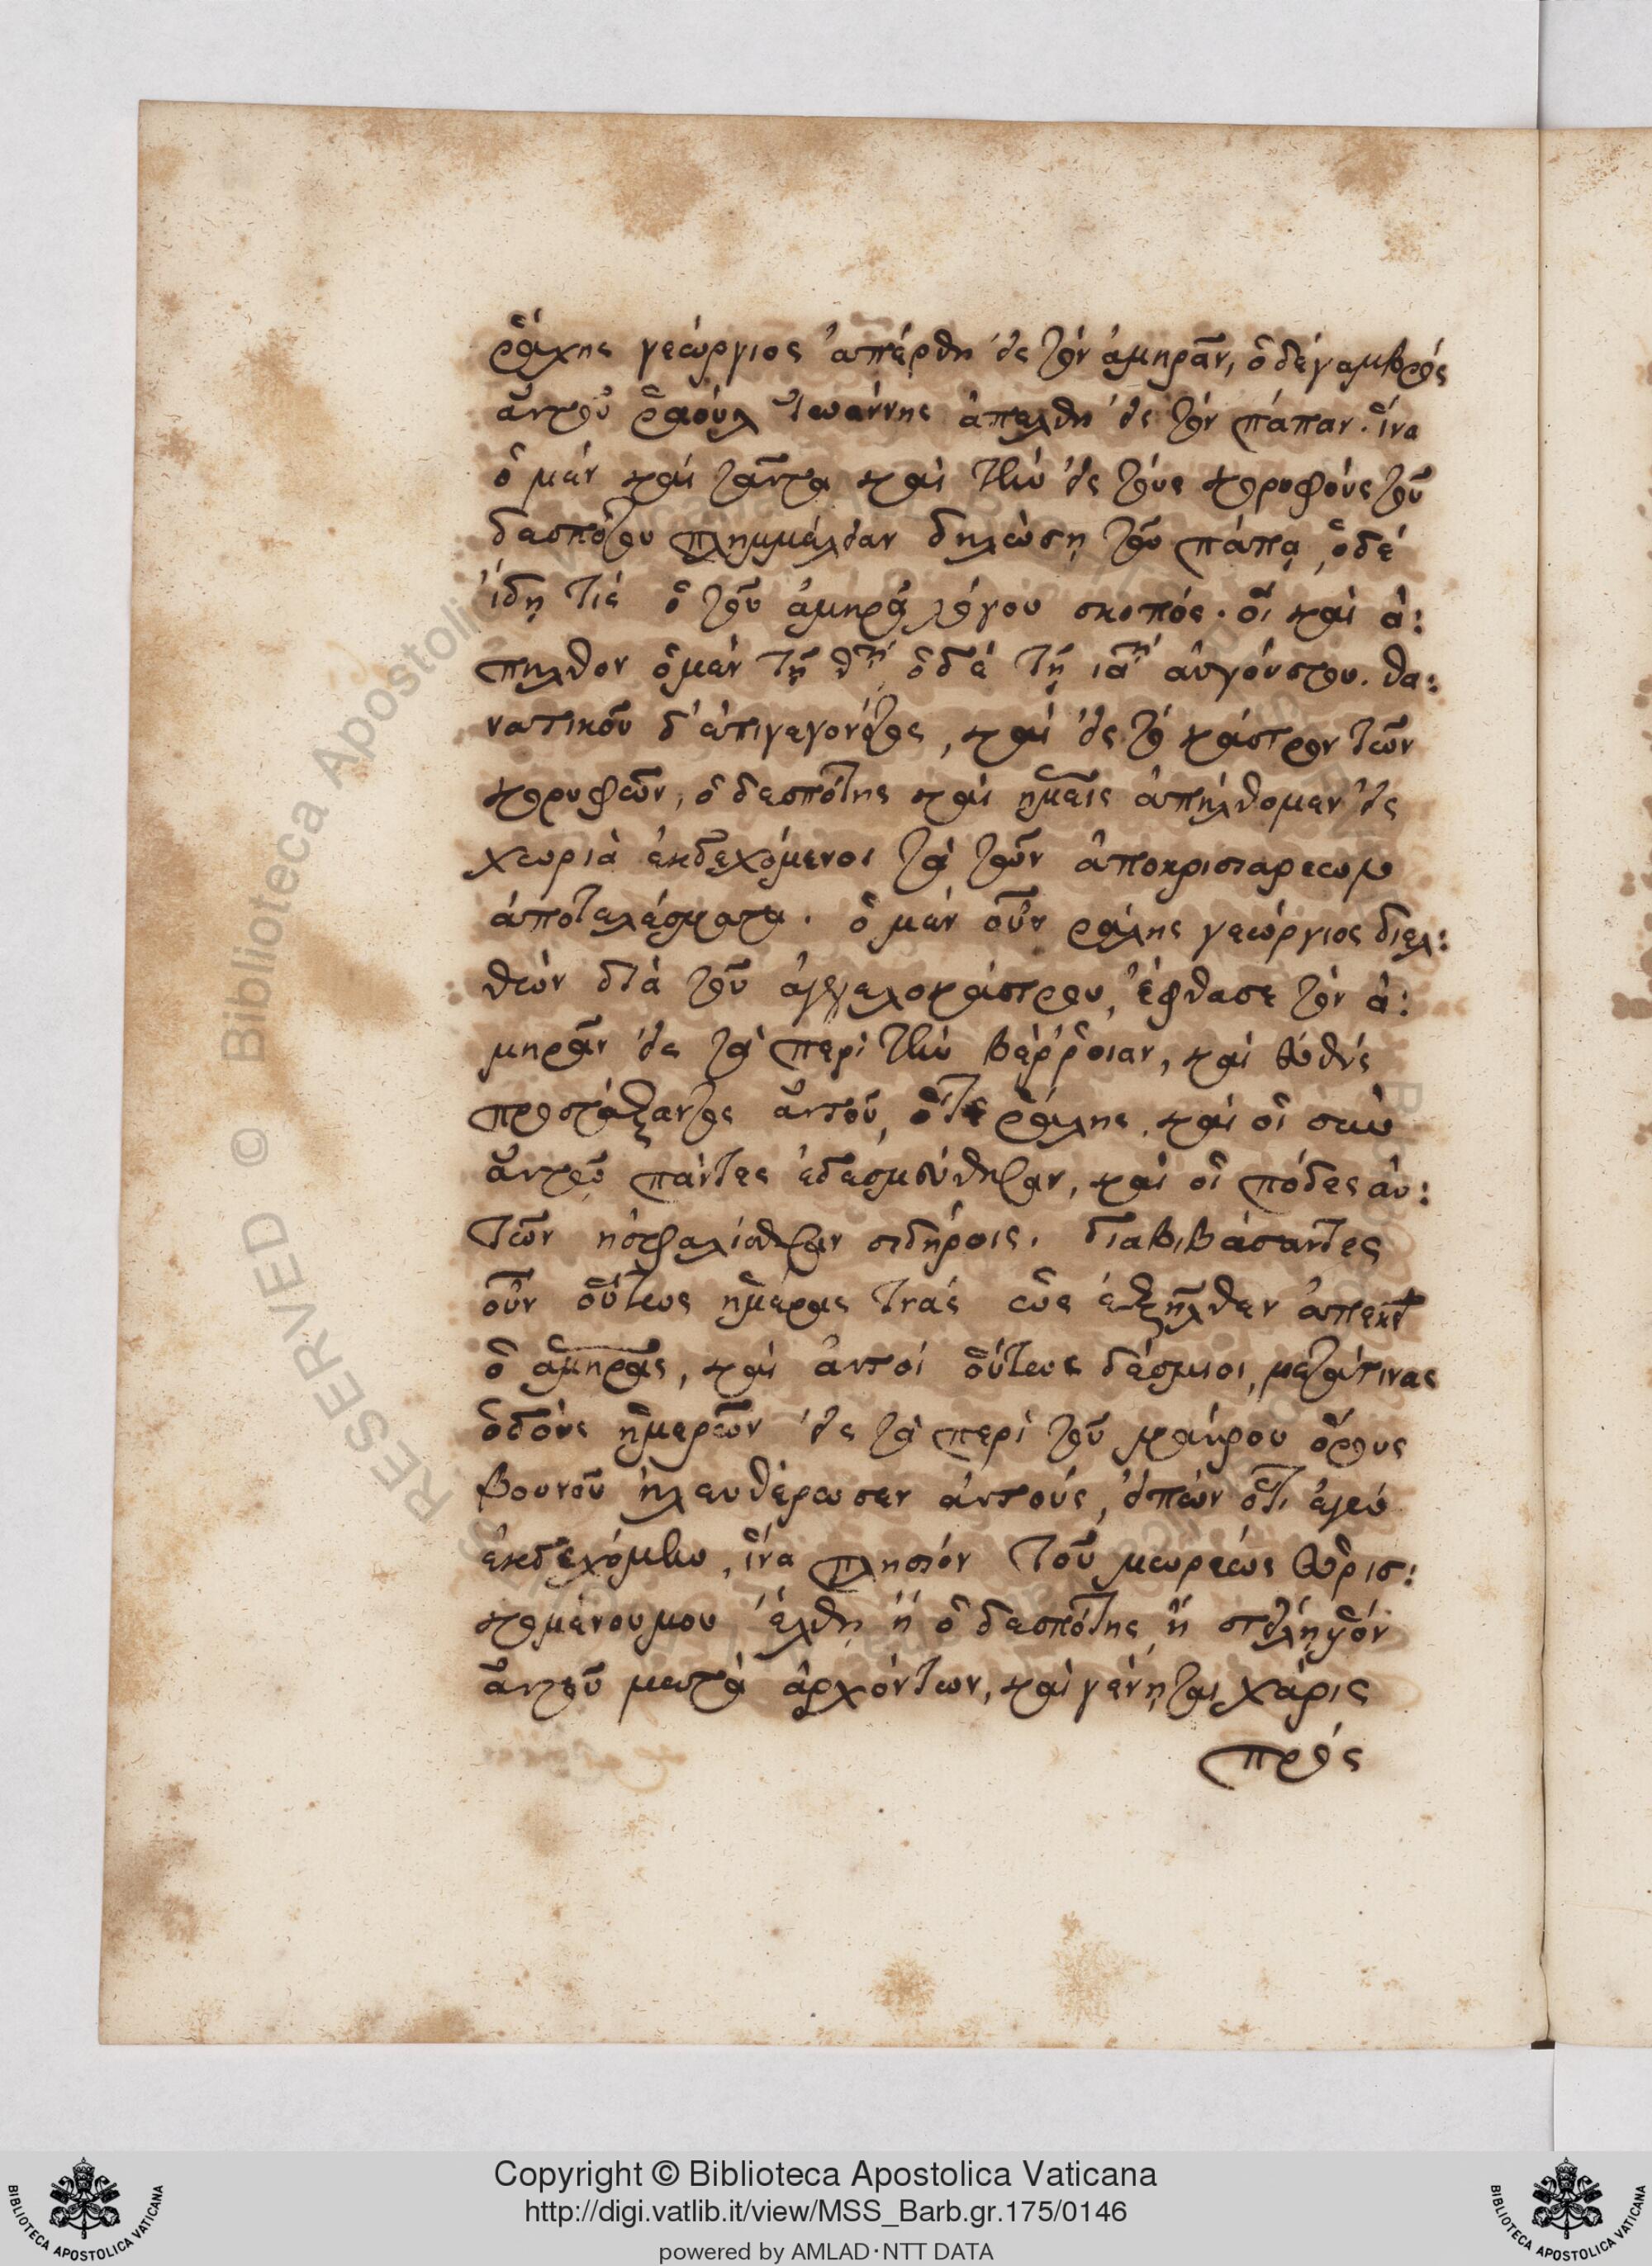 ῥάλης γεώργιος ἀπέρθη εἰς τὸν ἀμηρᾶν, ὁ δὲ γαμβρός
αὐτοῦ ῥαούλ Ἰωάννης ἀπέλθη εἰς τὸν πάπαν. ἵνα
ὁ μὲν καὶ ταῦτα καὶ τὴν εἰς τοὺς κορυφοὺς τοῦ
δεσπότου πλημμέλειαν δηλώσῃ τοῦ πάπα, ὁ δὲ
ἴδῃ τίς ὁ τοῦ ἀμηρᾶ λόγου σκοπός. οἳ καὶ ἀ:
πῆλθον ὁ μὲν τῇ θῃ, ὁ δὲ τῇ ιαῃ αὐγούστου. θα:
νατικοῦ δ' ἐπιγεγονότος, καὶ εἰς τὸ κάστρον τῶν
κορυφῶν, ὁ δεσπότης καὶ ἡμεῖς ἀπήλθομεν εἰς
χωριὰ ἐκδεχόμενοι τὰ τῶν ἀποκρισιαρεων
ἀποτελέσματα. ὁ μὲν οὖν ράλης γεώργιος διελ:
θὼν διὰ τοῦ ἀγγελοκάστρου, ἔφθασε τὸν ἀ:
μηρᾶν εἰς τὰ περὶ τὴν βέρροιαν, καὶ εὐθὺς
προστάξαντος αὐτοῦ, ὅτε ράλης, καὶ οἱ σὺν
αὐτοῦ πάντες ἐδεσμεύθησαν, καὶ οἱ πόδες αὐ:
τῶν ἠσφαλίσθησαν σιδήροις. διαβιβάσαντες
οὖν οὕτως ἡμέρας τινάς ἕως ἐξῆλθεν ἀπεκεῖ
ὁ ἀμηρᾶς, καὶ αὐτοὶ οὕτως δέσμιοι, μετά τινας
ὁδοὺς ἡμερῶν εἰς τὰ περὶ τοῦ μαύρου ὄρους
βουνοῦ ἠλευθέρωσεν αὐτούς, εἰπὼν ὅτι ἐγὼ
ἐκδεχόμην, ἵνα πλησίον τοῦ μωρέως εὑρισ:
κομένου μου ἔλθῃ ἢ ὁ δεσπότης ἢ στείλῃ υἱόν
αὐτοῦ μετὰ ἀρχόντων, καὶ γένηται χάρις
πρὸς
Copyright © Biblioteca Apostolica Vaticana
http://digi.vatlib.it/view/MSS_Barb.gr.175/0146
powered by AMLAD·NTT DATA
BIBLIOTECA APOSTOLICA VATICANA
BIBLIOTECA APOSTOLICA VATICANA